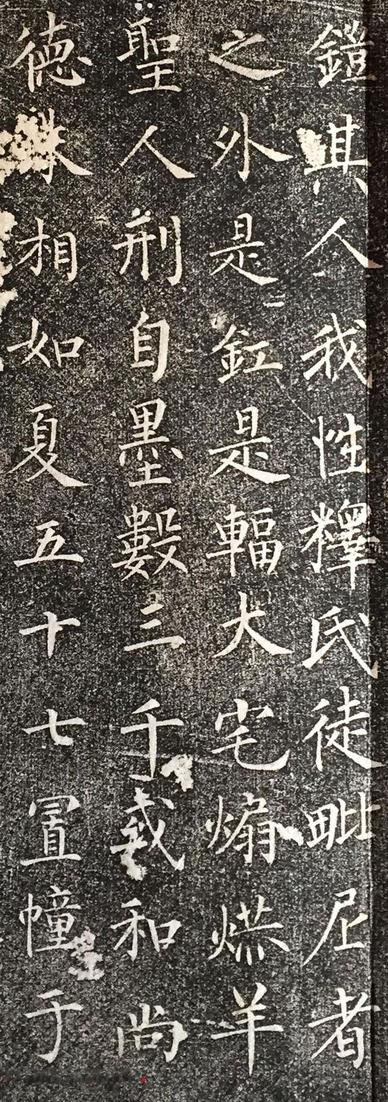 鎧其人我性釋氏徒毗尼者
之外是釭是輻大宅煽㷊羊
聖人刑自墨數三千戒和尚
德殊相如夏五十七置幢于